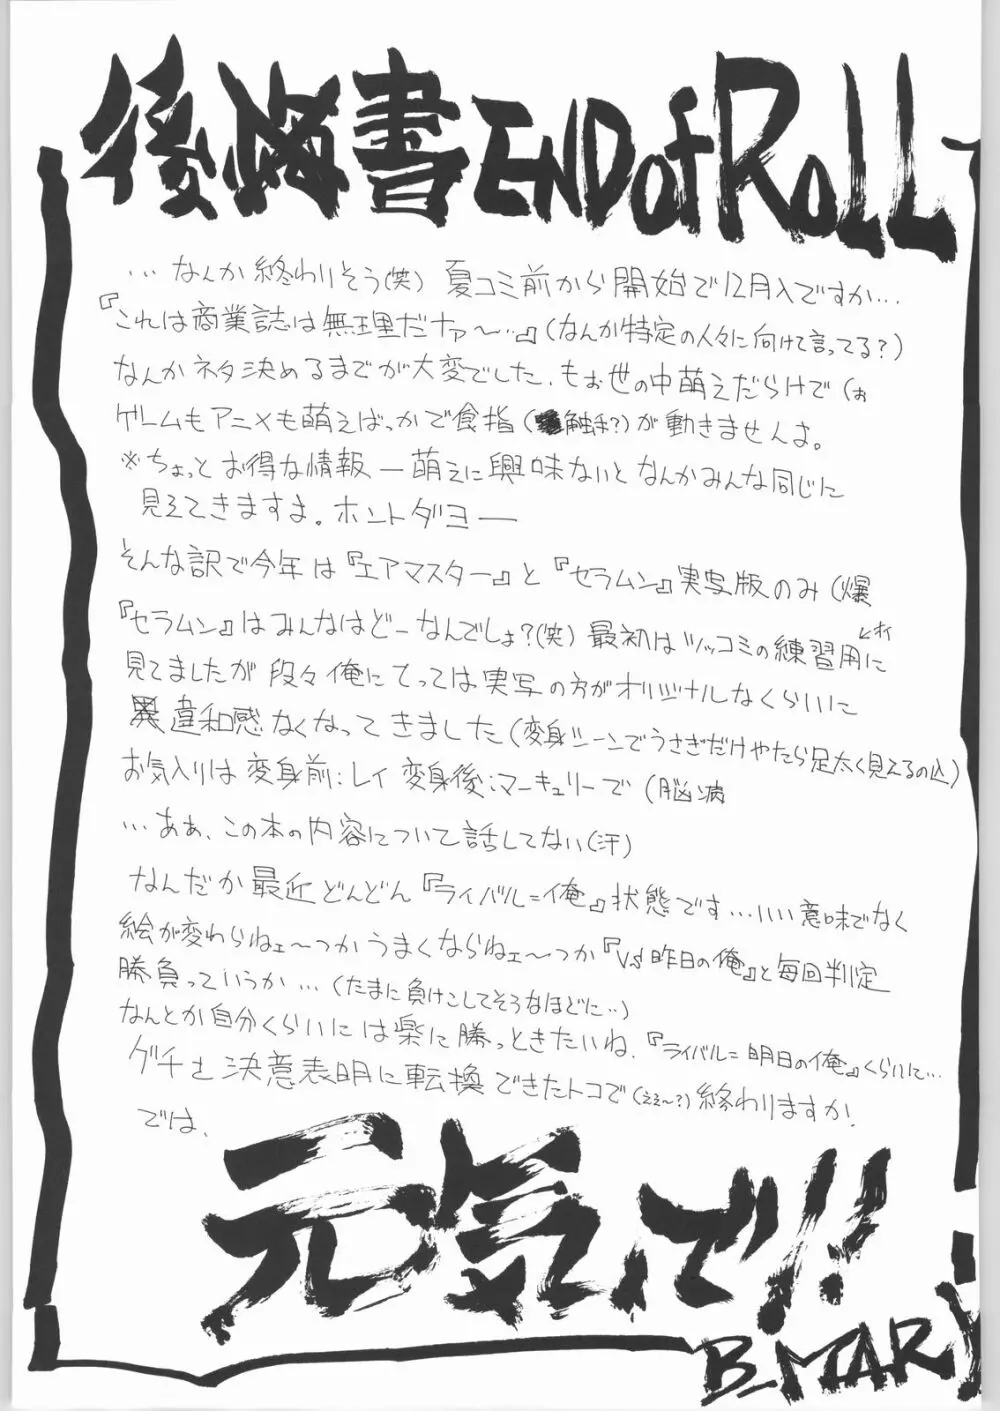 後悔書 END of RoLL
…なんか終わりそう(笑) 夏コミ前から開始で12月入ですか…
『これは商業誌は無理だナァ〜‥』(なんか特定の人々に向けて言ってる?)
なんかネタ決めるまでが大変でした。もぉ世の中萌えだらけで(ぉ
ゲームもアニメも萌えばっかで食指(触手?)が動きませんよ。
※ちょっとお得な情報ー萌えに興味ないとなんかみんな同じに
見えてきますよ。ホントダヨー
そんな訳で今年は『エアマスター』と『セラムン』実写版のみ(爆
『セラムン』はみんなはどーなんでしょ?(笑) 最初はツッコミの練習用に
←オイ
見てましたが段々俺にとっては実写の方がオリジナルなくらいに
違和感なくなってきました(変身シーンでうさぎだけやたら足太く見えるの込)
お気入りは変身前:レイ 変身後:マーキュリーで(脳病
…ああ、この本の内容について話してない(汗)
なんだか最近どんどん『ライバル=俺』状態です…いい意味でなく
絵が変わらねェ〜つかうまくならねェ〜つか『VS昨日の俺』と毎回判定
勝負っていうか…(たまに負けこしてそうなほどに‥)
なんとか自分くらいには楽に勝っときたいね、『ライバル=明日の俺』くらいに…
グチを決意表明に転換できたトコで(ええ〜?)終わりますか!
では、
元気で!!
B_MARY